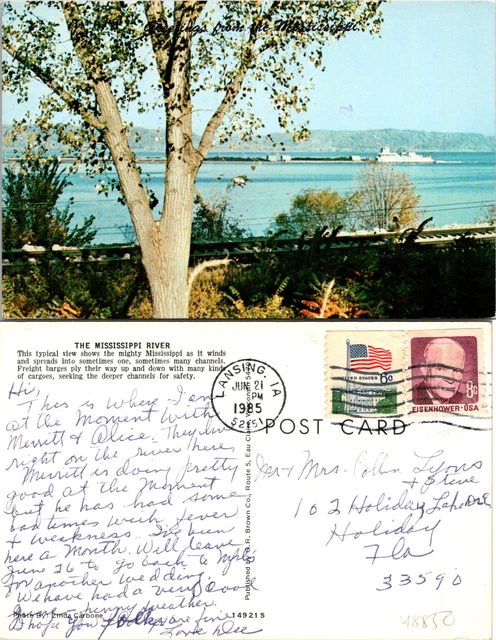 Greetings from the Mississippi.
THE MISSISSIPPI RIVER
This typical view shows the mighty Mississippi as it winds
and spreads into sometimes one, sometimes many channels.
Freight barges ply their way up and down with many kinds
of cargoes, seeking the deeper channels for safety.
Hi,
This is where I am
at the moment with
Merritt & Alice. They live
right on the river here
Merritt is doing pretty
good at the moment
but he has had some
bad times with fever
& weakness. I've been
here a Month. Will leave
June 26 to go back to Mpls.
for another wedding.
We have had a very cool
weather.
Hope you folks are fine
Love Dee
Photo By: Linda Carbone
149215
Published by G.R. Brown Co., Route 5, Eau Claire,
LANSING, IA
JUN 21
PM
1985
52151
UNITED STATES
6c
8c
EISENHOWER·USA
POST CARD
Mr & Mrs. Lyons
& Steve
102 Holiday Lake Dr
Holiday
Fla
33590
48850